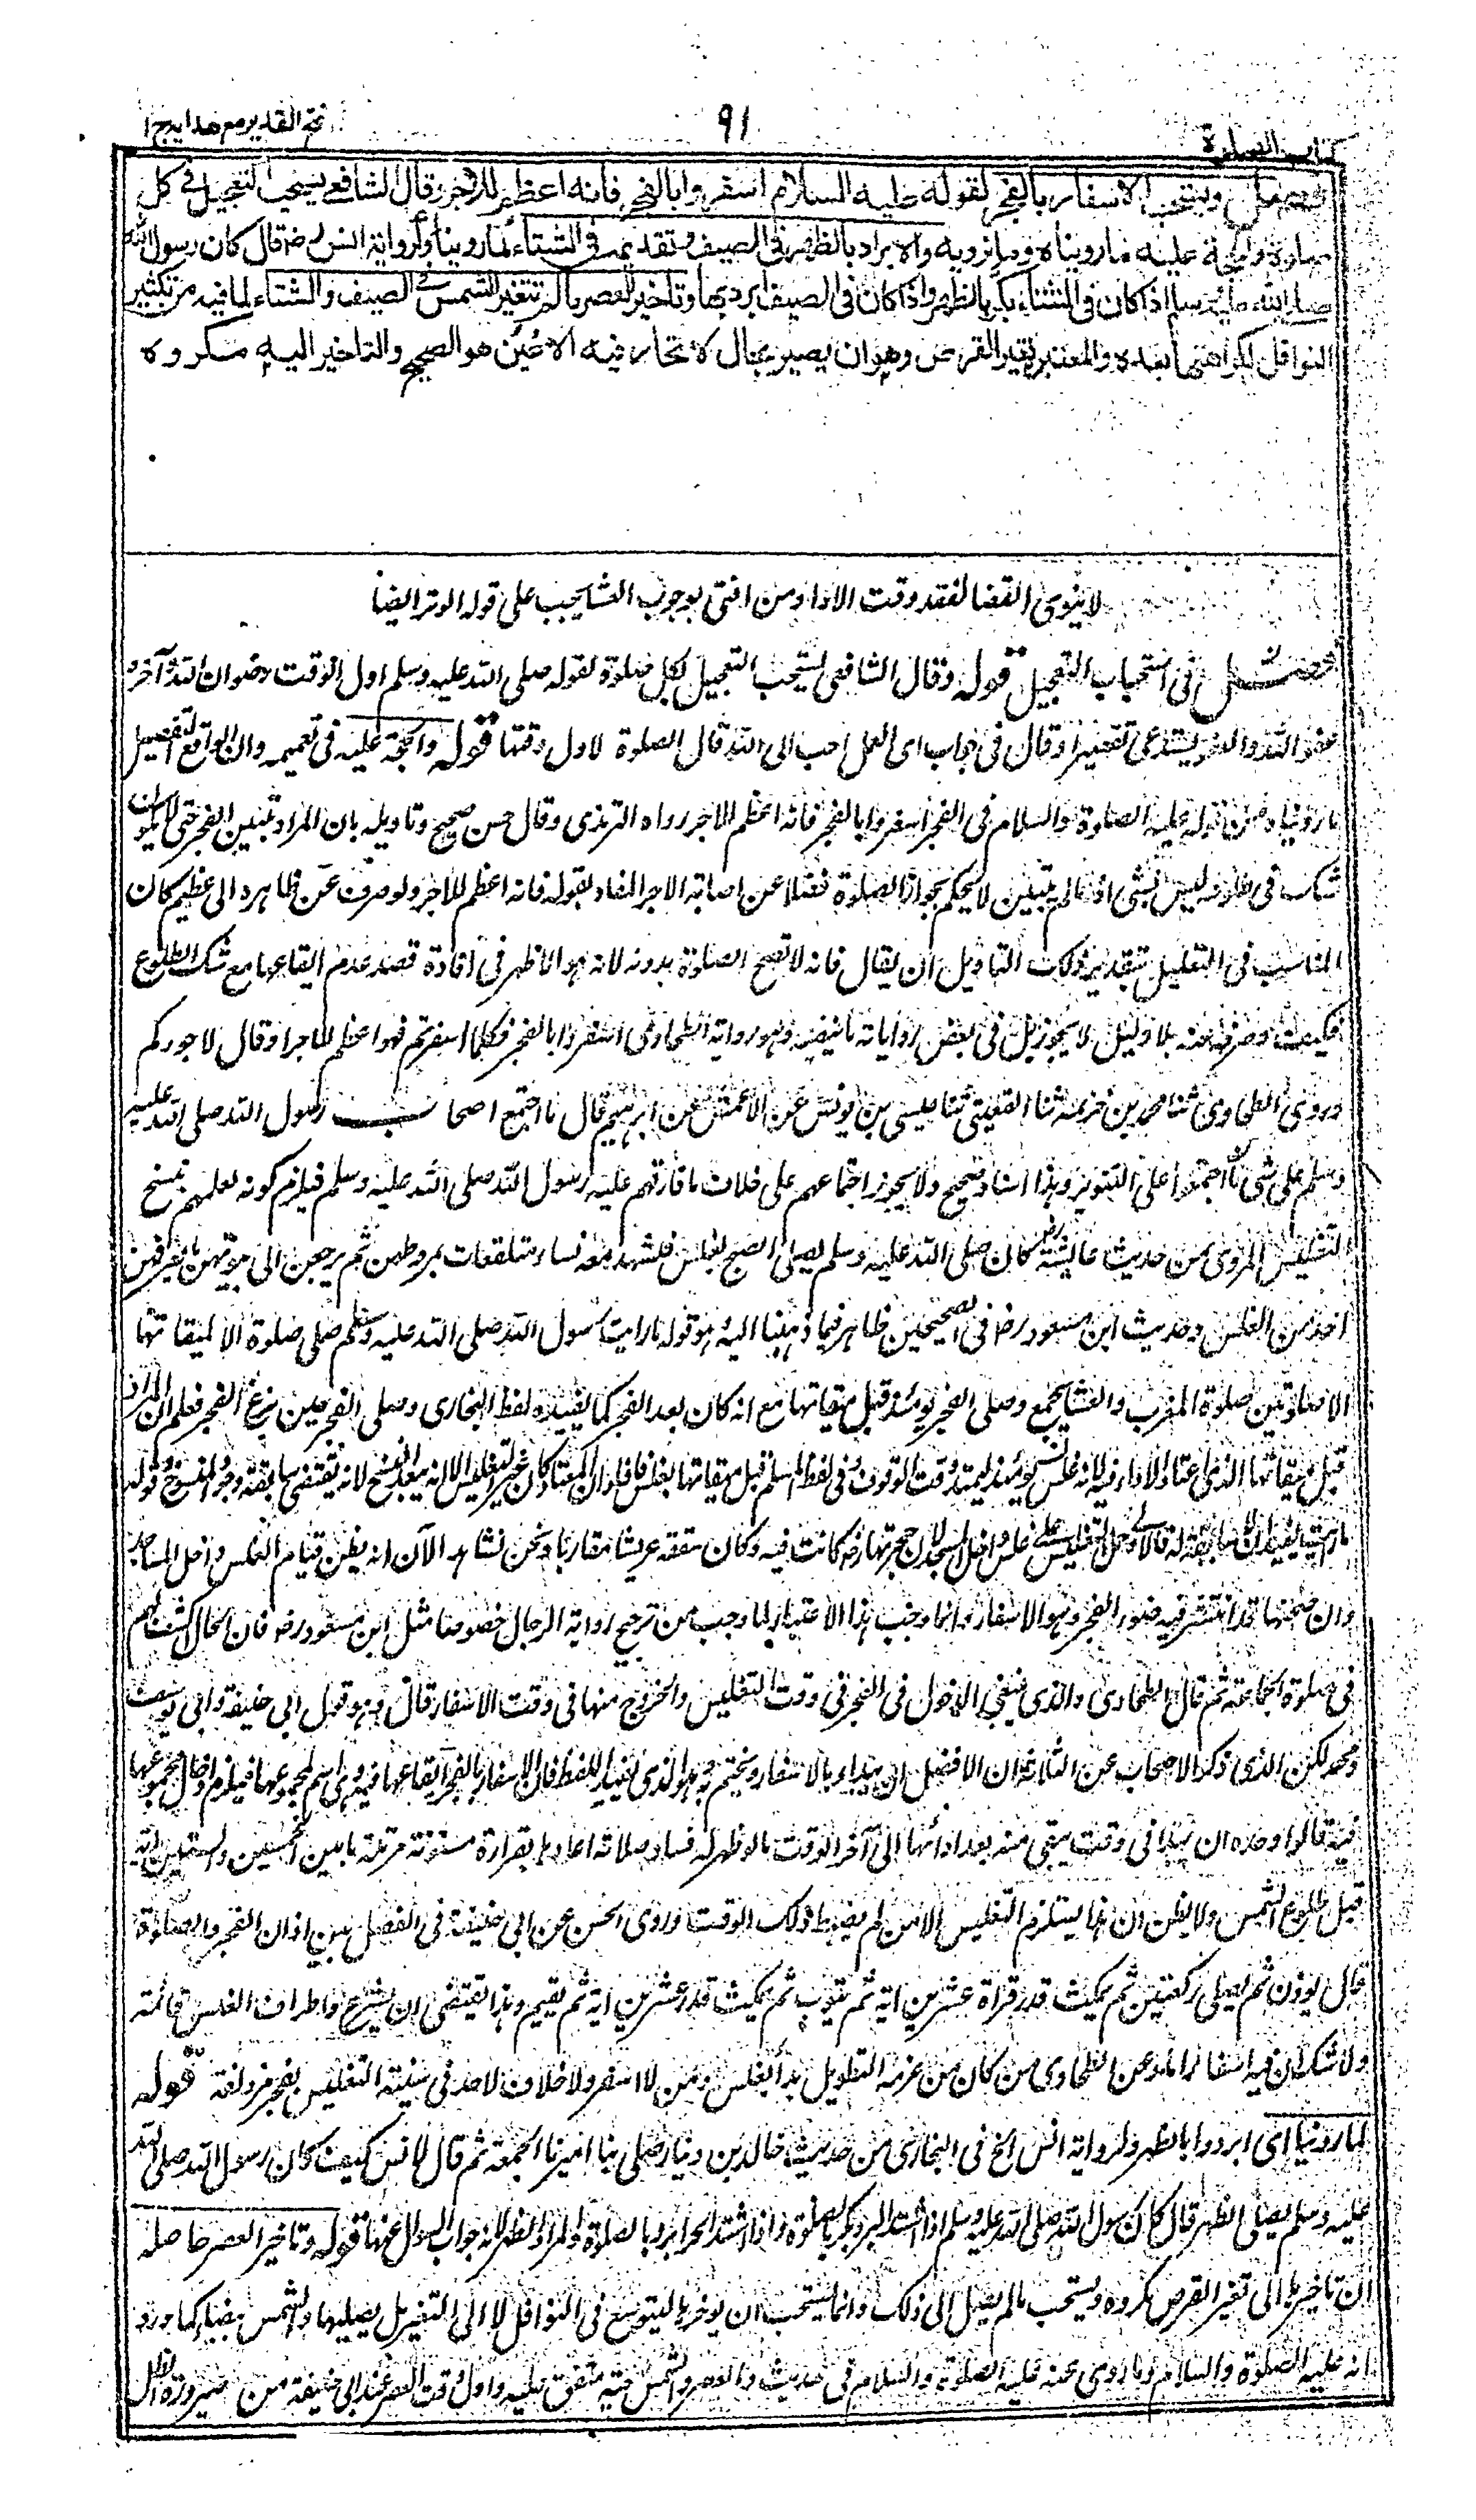 كتاب الصلوة
٩١
فتح القدير مع هدايه ج ١
فصل ويستحب الاسفار بالفجر لقوله عليه السلام اسفروا بالفجر فانه اعظم للاجر وقال الشافعي يستحب التعجيل في كل
صلوة والحجة عليه ما رويناه وما نرويه والابراد بالظهر في الصيف وتقديمه في الشتاء لما روينا ولرواية انس رض قال كان رسول الله
صلى الله عليه وسلم اذا كان في الشتاء بكر بالظهر واذا كان في الصيف ابرد بها وتاخير العصر ما لم تتغير الشمس في الصيف والشتاء لما فيه من تكثير
النوافل لكراهتها بعده والمعتبر تغير القرص وهو ان يصير بحال لا تحار فيه الاعين هو الصحيح والتاخير اليه مكروه
لا ينوى القضا لفقد وقت الادا ومن افتى بوجوب العشا يجب على قوله الوتر ايضا
فصل في استحباب التعجيل قوله وقال الشافعي يستحب التعجيل لكل صلوة لقوله صلى الله عليه وسلم اول الوقت رضوان الله وآخره
عفو الله والعفو يستدعى تقصيرا وقال في جواب اى العمل احب الى الله قال الصلوة لاول وقتها قوله والحجة عليه في تعميمه وان الواقع التفصيل
ما رويناه من قوله عليه الصلوة والسلام في الفجر اسفروا بالفجر فانه اعظم للاجر رواه الترمذى وقال حسن صحيح وتاويله بان المراد تبين الفجر حتى لا يكون
شك في طلوعه ليس بشى اذ ما لم يتبين لا يحكم بجواز الصلوة فضلا عن اصابة الاجر المفاد بقوله فانه اعظم للاجر ولو صرف عن ظاهره الى عظيم كان
المناسب في التعليل بتقدير ذلك التاويل ان يقال فانه لا تصح الصلوة بدونه لانه هو الاظهر في افادة قصد عدم ايقاعها مع شك الطلوع
فكيف وصرفه عنه بلا دليل لا يجوز بل في بعض رواياته ما ينفيه وهو رواية الطحاوى اسفروا بالفجر فكلما اسفرتم فهو اعظم للاجر او قال لاجوركم
وروى الطحاوى ثنا محمد بن خزيمة ثنا القعنبى ثنا عيسى بن يونس عن الاعمش عن ابرهيم قال ما اجتمع اصحاب رسول الله صلى الله عليه
وسلم على شى ما اجتمعوا على التنوير وهذا اسناد صحيح ولا يجوز اجتماعهم على خلاف ما فارقهم عليه رسول الله صلى الله عليه وسلم فيلزم كونه لعلمهم نسخ
التغليس المروى من حديث عايشة رض كان صلى الله عليه وسلم يصلى الصبح بغلس فتشهد معه نساء متلفعات بمروطهن ثم يرجعن الى بيوتهن ما يعرفهن
احد من الغلس وحديث ابن مسعود رض في الصحيحين ظاهر فيما ذهبنا اليه وهو قوله ما رايت رسول الله صلى الله عليه وسلم صلى صلوة الا لميقاتها
الا صلوتين صلوة المغرب والعشا بجمع وصلى الفجر يومئذ قبل ميقاتها مع انه كان بعد الفجر كما يفيده لفظ البخارى وصلى الفجر حين بزغ الفجر فعلم ان المراد
قبل ميقاتها الذى اعتاد الاداء فيه لانه غلس يومئذ ليمتد وقت الوقوف وفي لفظ لمسلم قبل ميقاتها بغلس فافاد ان المعتاد كان غير التغليس الا انه يبعد النسخ لانه يقتضى سابقة وجود المنسوخ وقوله
ما رايت يفيد ان لا سابقة له فالاولى حمل التغليس على غلس داخل المسجد لان حجرتها رض كانت فيه وكان سقفه عريشا مقاربا ونحن نشاهد الآن انه يظن قيام الغلس داخل المساجد
وان صحنها قد انتشر فيه ضوء الفجر وهو الاسفار وانما وجب هذا الاعتبار لما وجب من ترجيح رواية الرجال خصوصا مثل ابن مسعود رض فان الحال اكشف لهم
في صلوة الجماعة ثم قال الطحاوى والذى ينبغى الدخول في الفجر في وقت التغليس والخروج منها في وقت الاسفار قال وهو قول ابى حنيفة وابى يوسف
ومحمد لكن الذى ذكره الاصحاب عن الثلاثة ان الافضل ان يبدا بالاسفار ويختم به وهو الذى يفيده اللفظ فان الاسفار بالفجر ايقاعها فيه وهى اسم لمجموعها فيلزم ادخال مجموعها
فيه قالوا وحده ان يبدا في وقت يبقى منه بعد ادائها الى آخر الوقت ما لو ظهر له فساد صلاته اعادها بقراءة مسنونة مرتلة ما بين الخمسين والستين اية
قبل طلوع الشمس ولا يظن ان هذا يستلزم التغليس الا من لم يضبط ذلك الوقت وروى الحسن عن ابى حنيفة في الفصل بين اذان الفجر والصلوة
قال يوذن ثم يصلى ركعتين ثم يمكث قدر قراة عشرين اية ثم يثوب ثم يمكث قدر عشرين اية ثم يقيم وهذا يقتضى ان يشرع واطراف الغلس قائمة
ولا شك ان فيه اسفارا ما وعن الطحاوى من كان من عزمه التطويل بدأ بغلس ومن لا اسفر ولا خلاف لاحد في سنية التغليس بفجر مزدلفة قوله
لما روينا اى ابردوا بالظهر ولرواية انس الخ في البخارى من حديث خالد بن دينار صلى بنا اميرنا الجمعة ثم قال لانس كيف كان رسول الله صلى الله
عليه وسلم يصلى الظهر قال كان رسول الله صلى الله عليه وسلم اذا اشتد البرد بكر بالصلوة واذا اشتد الحر ابرد بالصلوة والمراد الظهر لانه جواب السوال عنها قوله وتاخير العصر حاصله
ان تاخيرها الى تغير القرص مكروه ويستحب ما لم يصل الى ذلك وانما يستحب ان يوخرها ليتوسع في النوافل لا الى التغير بل يصليها والشمس بيضاء كما ورد
انه عليه الصلوة والسلام وما روى عنه عليه الصلوة والسلام في حديث والعصر والشمس حية متفق عليه واول وقت العصر عند ابى حنيفة من صيرورة الظل